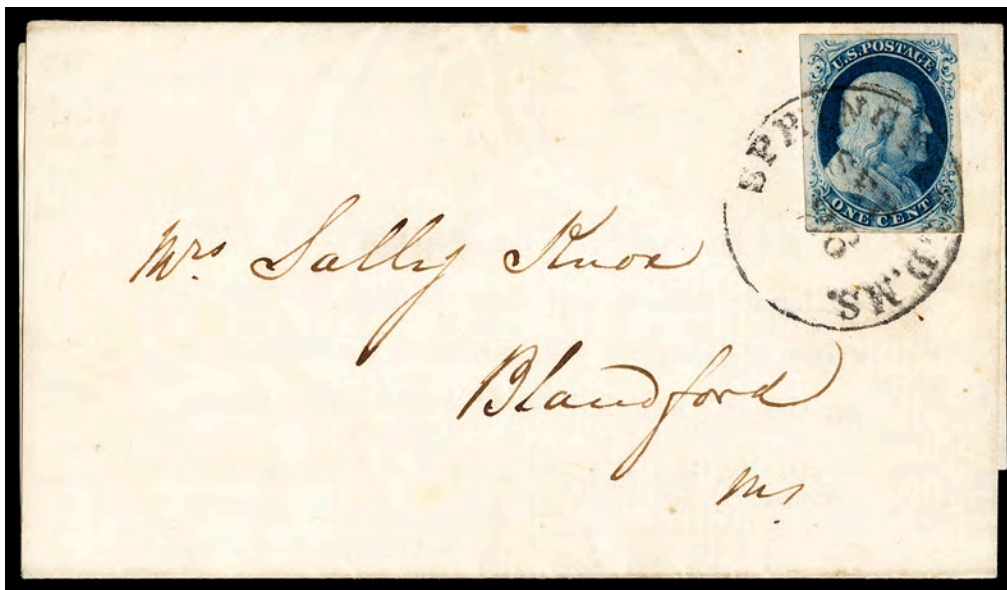 U.S. POSTAGE
ONE CENT
D.MS.
Mrs Sally Knox
Blandford
Ms